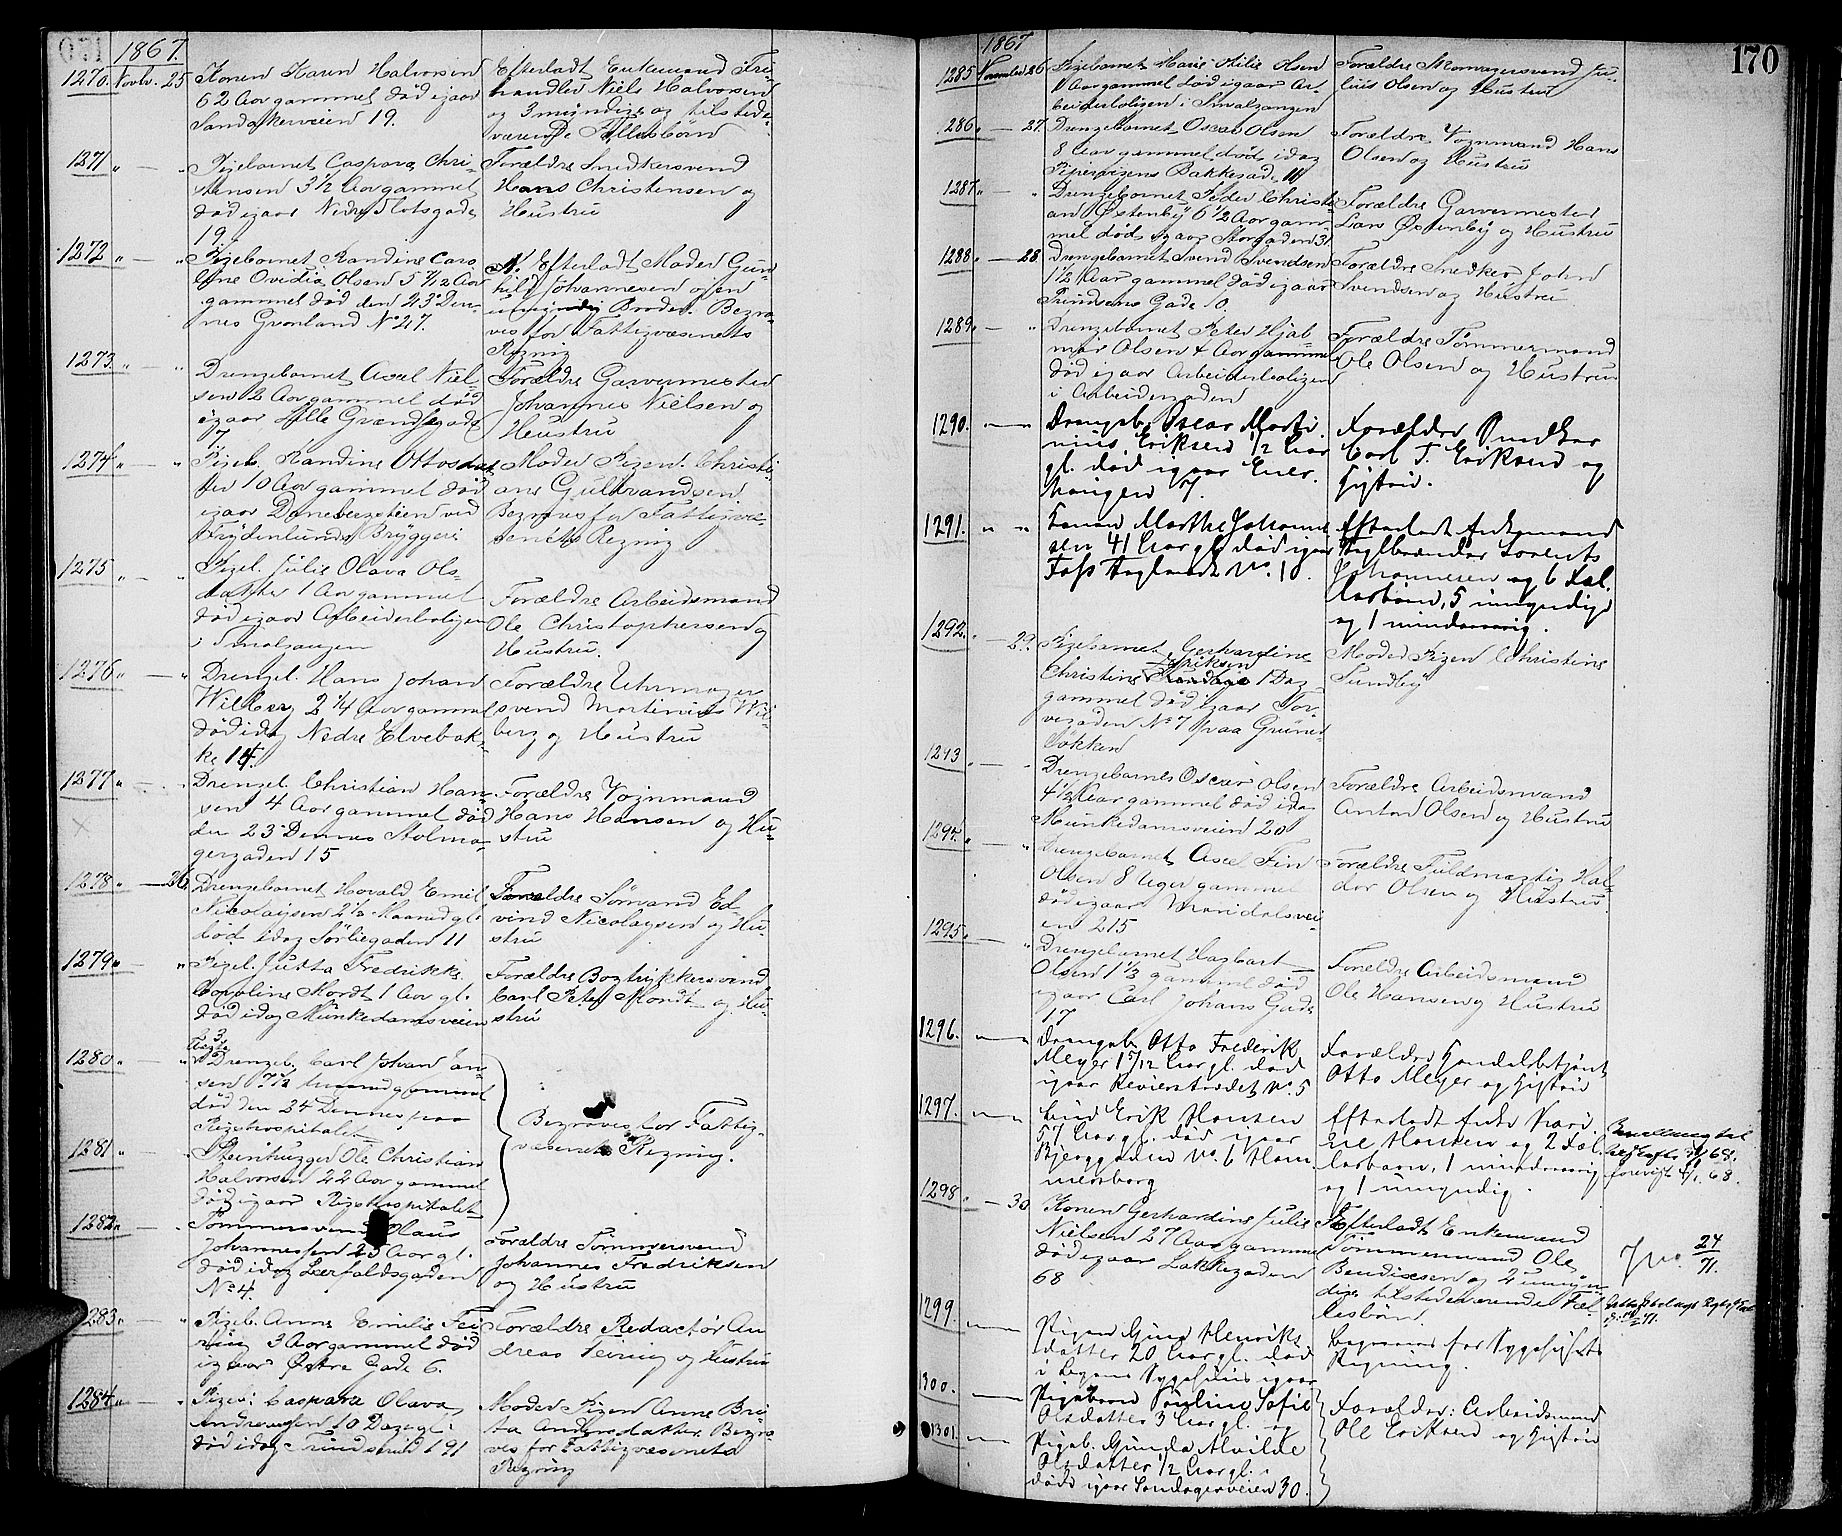 1867.
1270. Novbr. 25 Konen Karen Halvorsen
62 Aar gammel død igaar
Sandakerveien 19.
Efterladt Enkemand Fri-
handler Niels Halvorsen
og 3 myndige og tilstede-
værende Fællesbørn
1271 " — " Pigebarnet Caspara Chri-
stensen 3 1/2 Aar gammel
død igaar Nedre Slotsgade
19.
Forældre Snedkersvend
Hans Christensen og
Hustru
1272 " — " Pigebarnet Randine Caro-
line Ovidia Olsen 5 7/12 Aar
gammel død den 23de Den-
nes Grønland No 27.
Efterladt Moder Gun-
hild Johannesen og en
umyndig Broder. Begra-
ves for Fattigvæsenets
Regning
1273. " — " Drengebarnet Axel Niel-
sen 2 Aar gammel død
igaar Lille Grændsegade
7
Forældre Garvermester
Johannes Nielsen og
Hustru
1274 " — " Pigeb. Randine Ottosdat-
ter 10 Aar gammel død
igaar ved
Frydenlunds Bryggeri
Moder Pigen Christi-
ane Gulbrandsen.
Begraves for Fattigvæ-
senets Regning
1275 " — " Pigeb. Julie Olava Ols-
datter 1 Aar gammel
død igaar Arbeiderboligen
i Smalgangen
Forældre Arbeidsmand
Ole Christophersen og
Hustru.
1276 " — " Drengeb. Hans Johan
Wilberg 2 1/4 Aar gammel
død idag Nedre Elvebak-
ke 14.
Forældre Uhrmager
svend Martinius Wil-
berg og Hustru
1277 " — " Drengeb. Christian Han-
sen 4 Aar gammel død
den 23de Dennes Stolma-
gergaden 15
Forældre Vognmand
Hans Hansen og Hu-
stru
1278 " — 26. Drengebarnet Harald Emil
Nicolaysen 2 1/2 Maaned gl.
død idag Sørliegaden 11
Forældre Sømand Ed-
vind Nicolaysen og Hu-
stru
1279 " — " Pigeb. Jutta Fredrikke
Caroline Mordt 1 Aar gl.
død idag Munkedamsveien
3
Forældre Bogtrykkersvend
Carl Peter Mordt og Hu-
stru
1280 " — " Drengeb. Carl Johan Jan-
sen 7 1/2 gammel
død den 24 Dennes paa
Rigshospitalet
Begraves for Fattig-
væsenets Regning.
1281 " — " Steenhugger Ole Christian
Halvorsen 22 Aar gammel
død igaar Rigshospitalet
1282 " — " Tømmersvend Olaus
Johannessen 25 Aar gl.
død idag Leerfaldsgaden
No 4.
Forældre Tømmersvend
Johannes Fredriksen
og Hustru
1283 " — " Pigeb. Anna Emilie Fei-
ring 3 Aar gammel død
igaar Østre Gade 6.
Forældre Redactør An-
dreas Feiring og Hustru
1284 " — " Pigeb. Caspara Olava
Andreassen 10 Dage gl.
død idag Trondhjemsveien 91
Moder Pigen Anne Bri-
ta Andersdatter. Begra-
ves for Fattigvæsenets
Regning
170
1867
1285 November 26 Pigebarnet Marie Milie Olsen
1 Aar gammel død igaar Ar-
beiderboligen i Smalgangen
Forældre Skomagersvend Ju-
lius Olsen og Hustru
286. — 27. Drengebarnet Oscar Olsen
8 Aar gammel død idag
Pipervigens Bakkegade 11
Forældre Vognmand Hans
Olsen og Hustru
1287 " — " Drengebarnet Peder Christi-
an Østenby 6 1/2 Aar gam-
mel død igaar Storgaden 31
Forældre Garvermester
Lars Østenby og Hustru
1288 " — 28 Drengebarnet Svend Svendsen
1 1/2 Aar gammel død igaar
Prindsens Gade 10.
Forældre Snedker John
Svendsen og Hustru
1289 " — " Drengebarnet Peter Hjal-
mar Olsen 4 Aar gammel
død igaar Arbeiderboligen
i Arbeidergaden
Forældre Tømmermand
Ole Olsen og Hustru
1290. — " Drengeb. Oscar Marti-
nius Eriksen 1/2 Aar
gl. død igaar Ener-
haugen 7.
Forældre Snedker
Carl F. Eriksen og
Hustru.
1291. " " Konen Marthe Johanne-
sen 41 Aar gl. død igaar
No. 10.
Efterladt Enkemand
Teglbrænder Lorents
Johannesen og 6 Fæl-
lesbørn, 5 umyndige
og 1 mindreaarig.
1292. " — 29. Pigebarnet Gerhardine
Christine Eriksen 1 Dag
gammel død igaar Tor-
vegaden No 7 paa Grüner-
løkken
Moder Pigen Christine
Sundby
1293 — " Drengebarnet Oscar Olsen
4 1/2 Aar gammel død idag
Munkedamsveien 20
Forældre Arbeidsmand
Anton Olsen og Hustru
1294. " — " Drengebarnet Axel Fin
Olsen 8 Uger gammel
død igaar Maridalsvei-
en 215
Forældre Fuldmægtig Hal-
dor Olsen og Hustru
1295 " — " Drengebarnet Hagbart
Olsen 1 1/2 gammel død
igaar Carl Johans Gade
17
Forældre Arbeidsmand
Ole Hansen og Hustru
1296. — " Drengeb. Otto Frederik
Meyer 1 5/12 Aar gl. død
igaar Revierstrædet No. 5
Forældre Handelsbetjent
Otto Meyer og Hustru
1297. — " Erik Hansen
57 Aar gl. død igaar
Bjerggaden No. 6 Ham-
mersborg
Efterladt Enke Kari-
ne Hansen og 2 Fæl-
lesbørn, 1 mindreaarig
og 1 umyndig.
68.
forevist 68.
1298 " — 30 Konen Gerhardine Julie
Nielsen 27 Aar gammel
død igaar Lakkegaden
68
Efterladt Enkemand
Tømmermand Ole
Bendixsen og 2 umyn-
dige tilstedeværende Fæl-
lesbørn.
24/71.
1299. — Pigen Gina Henriks-
datter 20 Aar gl. død
i Byens Sygehuus igaar
Begraves for Sygehusets
Regning.
1300. — Pigebarn Pouline Sofie
Olsdatter 3 Aar gl. og
1301. — Pigeb. Gunda Alvilde
Olsdatter 1/2 Aar gl.
døde igaar Sandagerveien 30.
Forældre: Arbeidsmand
Ole Eriksen og Hustru